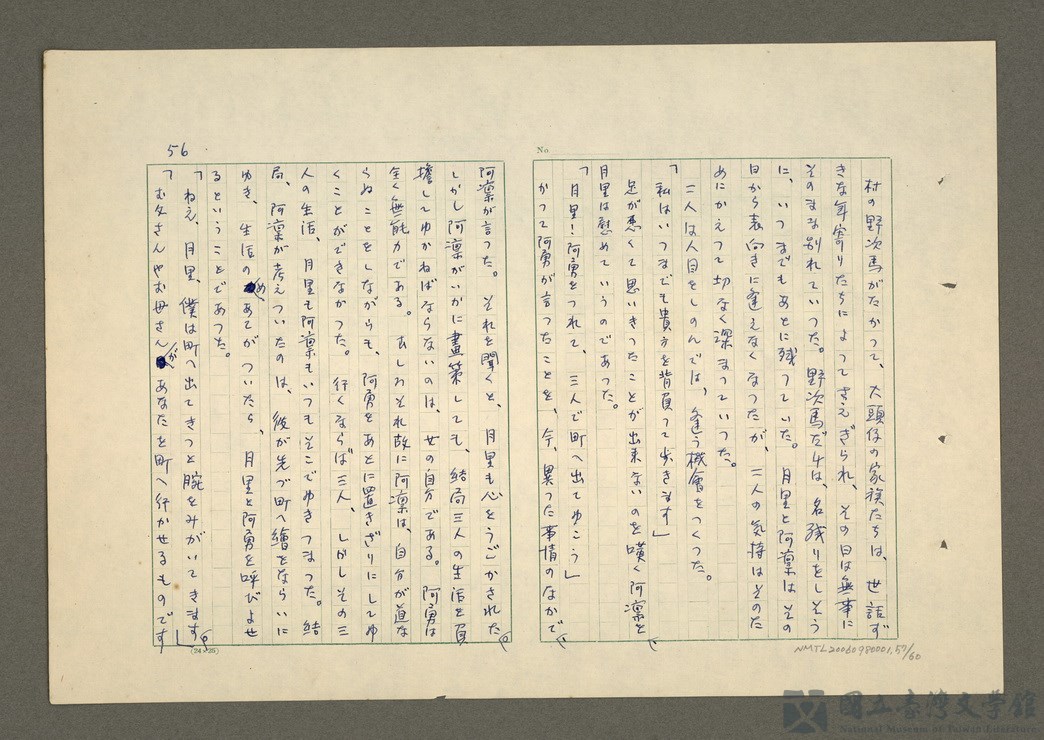 村の野次馬がたかつて、大頭仔の家族たちは、世話ず
きな年寄りたちによつてさえぎられ、その日は無事に
そのまま別れていつた。野次馬だけは、名残りをしそう
に、いつまでもあとに残つていた。月里と阿凜はその
日から表向きに逢えなくなつたが、二人の気持はそのた
めにかえつて切なく深まつていつた。
二人は人目をしのんでは、逢う機會をつくつた。
「私はいつまでも貴方を背負つて歩きます」
足が悪くて思いきつたことが出来ないのを嘆く阿凜を、
月里は慰めていうのであつた。
「月里!阿勇をつれて、三人で町へ出てゆこう」
かつて阿勇が言つたことを、今、異つた事情のなかで、
No
阿凜が言つた。それを聞くと、月里も心をうごかされた。
しかし阿凜がいかに畫策しても、結局三人の生活を負
擔してゆかねばならないのは、女の自分である。阿勇は
全く無能力である。しかしそれ故に阿凜は、自分が道な
らぬことをしながらも、阿勇をあとに置きざりにしてゆ
くことができなかつた。行くならば三人、しかしその三
人の生活、月里も阿凜もいつもそこでゆきつまつた。結
局、阿凜が考えついたのは、彼が先づ町へ繪をならいに
ゆき、生活のめあてがついたら、月里と阿勇を呼びよせ
るということであつた。
「ねえ、月里、僕は町へ出てきつと腕をみがいてきます。」
「お父さんやお母さんがあなたを町へ行かせるものです
56
(24×25)
NMTL20060980001.57/60
國立臺灣文學館
National Museum of Taiwan Literature